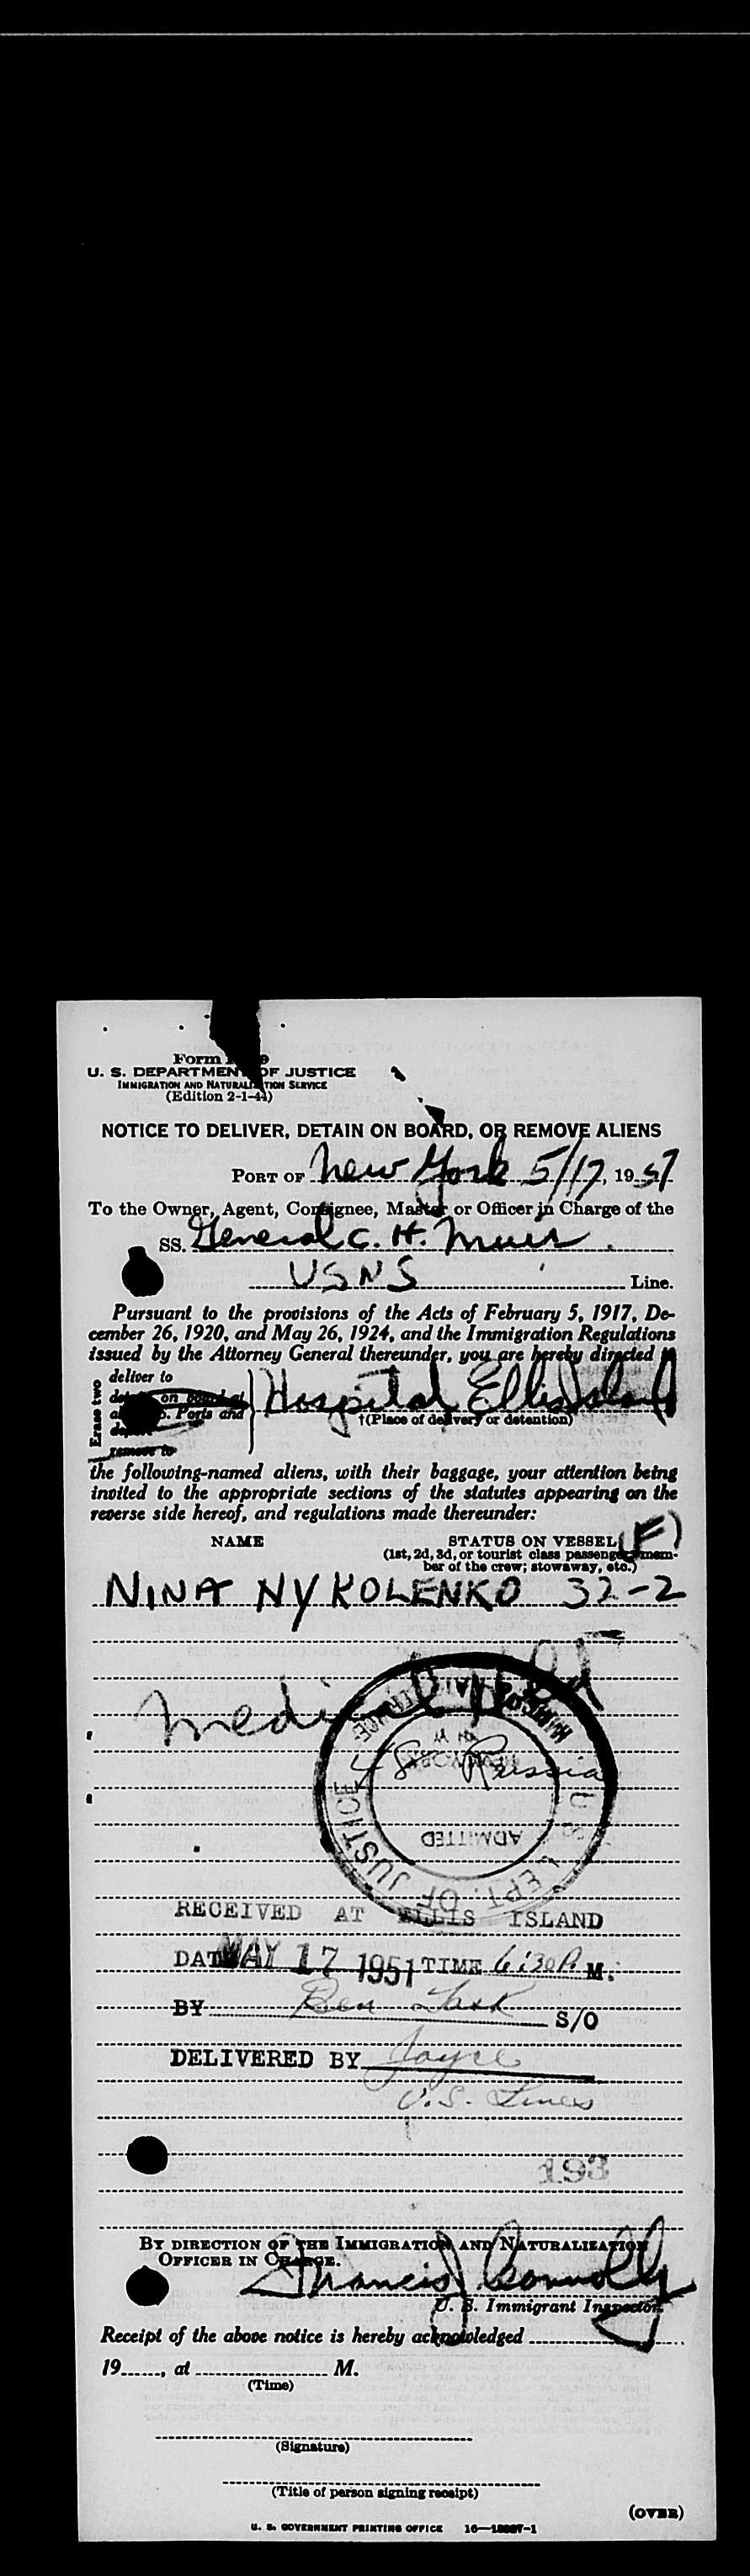 Form 9
U. S. DEPARTMENT OF JUSTICE
IMMIGRATION AND NATURALIZATION SERVICE
(Edition 2-1-44)
NOTICE TO DELIVER, DETAIN ON BOARD, OR REMOVE ALIENS
PORT OF New York 5/17, 1951
To the Owner, Agent, Consignee, Master or Officer in Charge of the
SS. General C. H. Muir
USNS Line.
Pursuant to the provisions of the Acts of February 5, 1917, De-
cember 26, 1920, and May 26, 1924, and the Immigration Regulations
issued by the Attorney General thereunder, you are hereby directed to
Erase two
deliver to
on board at
Ports and
remove to
Hospital Ellis Island
†(Place of delivery or detention)
the following-named aliens, with their baggage, your attention being
invited to the appropriate sections of the statutes appearing on the
reverse side hereof, and regulations made thereunder:
NAME STATUS ON VESSEL (F)
(1st, 2d, 3d, or tourist class passenger, mem-
ber of the crew; stowaway, etc.)
NINA NYKOLENKO 32-2
Medical
Russia
ADMITTED
U. S. DEPT. OF JUSTICE
RECEIVED AT ELLIS ISLAND
DATE MAY 17 1951 TIME 6:30 P M.
BY Ben S/O
DELIVERED BY Joyce
U.S. Lines
193
BY DIRECTION OF THE IMMIGRATION AND NATURALIZATION
OFFICER IN CHARGE.
Francis J. Connolly
U. S. Immigrant Inspector.
Receipt of the above notice is hereby acknowledged
19, at M.
(Time)
(Signature)
(Title of person signing receipt)
(OVER)
U. S. GOVERNMENT PRINTING OFFICE